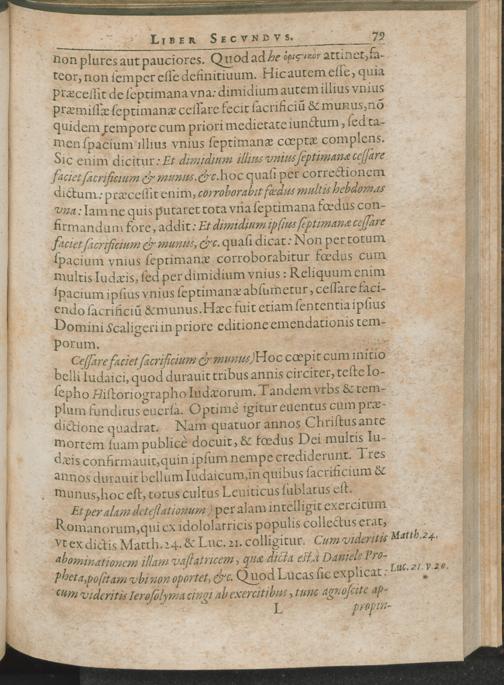 LIBER SECVNDVS. 79
non plures aut pauciores. Quod ad he ὁριςικὸν attinet, fa-
teor, non semper esse definitiuum. Hic autem esse, quia
præcessit de septimana vna: dimidium autem illius vnius
præmissæ septimanæ cessare fecit sacrificiũ & munus, nõ
quidem tempore cum priori medietate iunctum, sed ta-
men spacium illius vnius septimanæ cœptæ complens.
Sic enim dicitur: Et dimidium illius vnius septimanæ cessare
faciet sacrificium & munus, &c. hoc quasi per correctionem
dictum: præcessit enim, corroborabit fœdus multis hebdomas
vna: Iam ne quis putaret tota vna septimana fœdus con-
firmandum fore, addit: Et dimidium ipsius septimanæ cessare
faciet sacrificium & munus, &c. quasi dicat: Non per totum
spacium vnius septimanæ corroborabitur fœdus cum
multis Iudæis, sed per dimidium vnius: Reliquum enim
spacium ipsius vnius septimanæ absumetur, cessare faci-
endo sacrificiũ & munus. Hæc fuit etiam sententia ipsius
Domini Scaligeri in priore editione emendationis tem-
porum.
Cessare faciet sacrificium & munus) Hoc cœpit cum initio
belli Iudaici, quod durauit tribus annis circiter, teste Io-
sepho Historiographo Iudæorum. Tandem vrbs & tem-
plum funditus euersa. Optimè igitur euentus cum præ-
dictione quadrat. Nam quatuor annos Christus ante
mortem suam publicè docuit, & fœdus Dei multis Iu-
dæis confirmauit, quin ipsum nempe crediderunt. Tres
annos durauit bellum Iudaicum, in quibus sacrificium &
munus, hoc est, totus cultus Leuiticus sublatus est.
Et per alam detestationum) per alam intelligit exercitum
Romanorum, qui ex idololatricis populis collectus erat,
vt ex dictis Matth. 24. & Luc. 21. colligitur. Cum videritis Matth. 24.
abominationem illam vastatricem, quæ dicta est à Daniele Pro-
pheta, positam vbi non oportet, &c. Quod Lucas sic explicat: Luc. 21. v. 20.
cum videritis Ierosolyma cingi ab exercitibus, tunc agnoscite ap-
L propin-